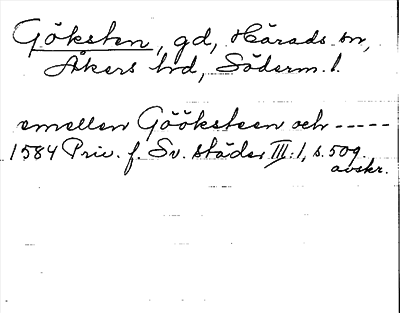 Göksten, gd, Härads sn,
Åkers hd, Söderm. l.
emellan Gööksteen och -----
1584 Priv. f. Sv. städer III:1, s. 509.
avskr.